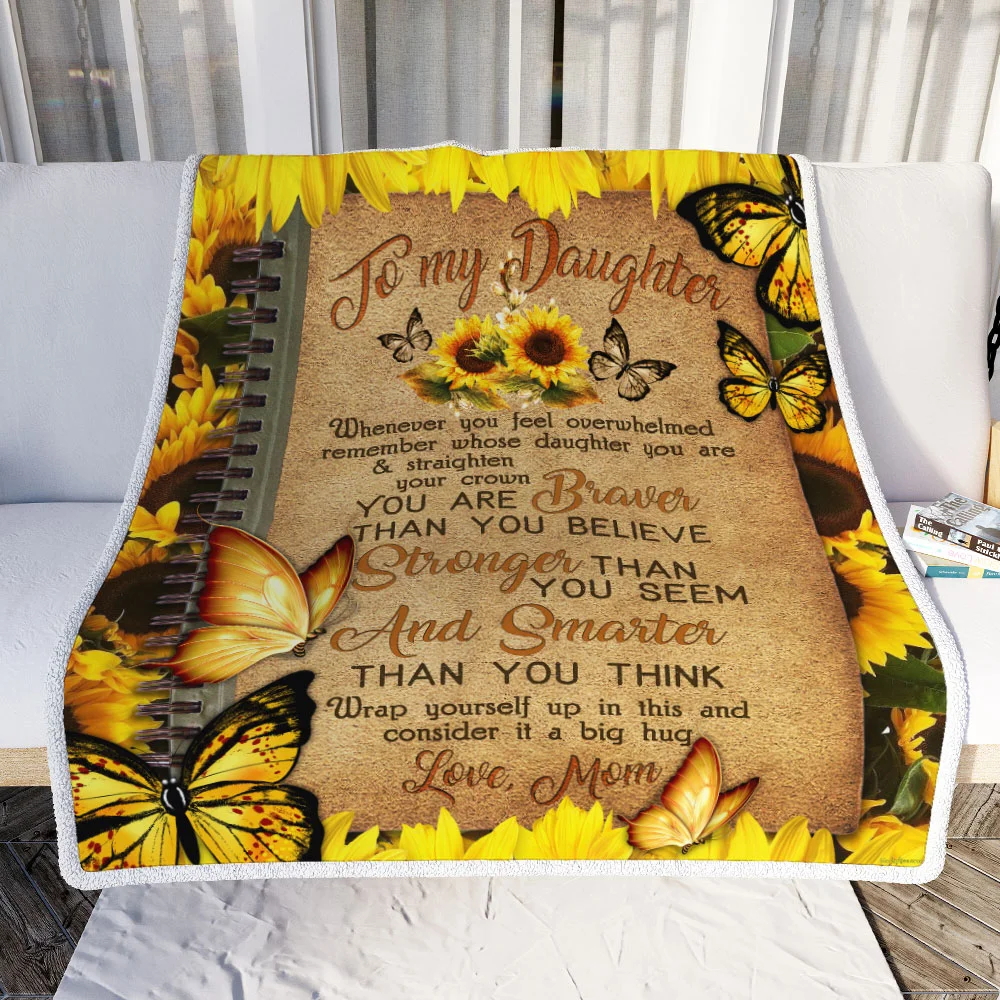 To my Daughter
Whenever you feel overwhelmed
remember whose daughter you are
& straighten
your crown
YOU ARE Braver
THAN YOU BELIEVE
Stronger THAN
YOU SEEM
And Smarter
THAN YOU THINK
Wrap yourself up in this and
consider it a big hug
Love, Mom
The
Calling
Paul